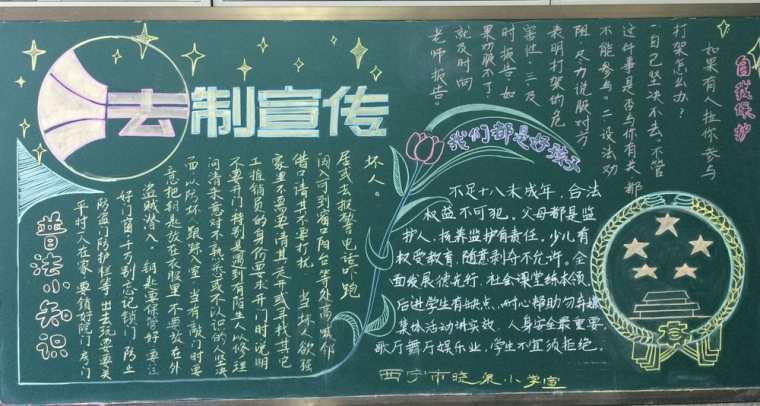 法制宣传
普法小知识
平时人在家,要锁好院门、房门
防盗门防护栏等,出去玩要关
好门窗,千万别忘记锁门,防止
盗贼潜入。钥匙要保管好,要注
意把钥匙放在衣服里,不要放在外
面,以防坏跟踪入室。当有敲门时要
问清来意,对不熟悉或不认识的人坚决
不要开门,特别是遇到有陌生人以修理
工、推销员的身份要求开门时,说明
家里不需要,请其走开或寻找其它
借口请其不要打扰。当坏欲强
闯入,可到窗口、阳台等处高喊邻
居或去报警电话吓跑
坏人。
自我保护
如果有人拉你参与
打架怎么办?
一自己坚决不去,不管
这件事是否与你有关,都
不能参与。二设法劝
阻,尽力说服对方
表明打架的危
害性。三、及
时报告。如
果劝服不了,
就及时向
老师报告。
我们都是好孩子
不足十八未成年,合法
权益不可犯。父母都是监
护人,抚养监护有责任。少儿有
权受教育,随意剥夺不允许。全
面发展德先行,社会课堂练本领。
后进学生有缺点,耐心帮助勿弃嫌
集体活动讲实效,人身安全最重要。
歌厅舞厅娱乐业,学生不宜须拒绝。
西宁市晓泉小学宣